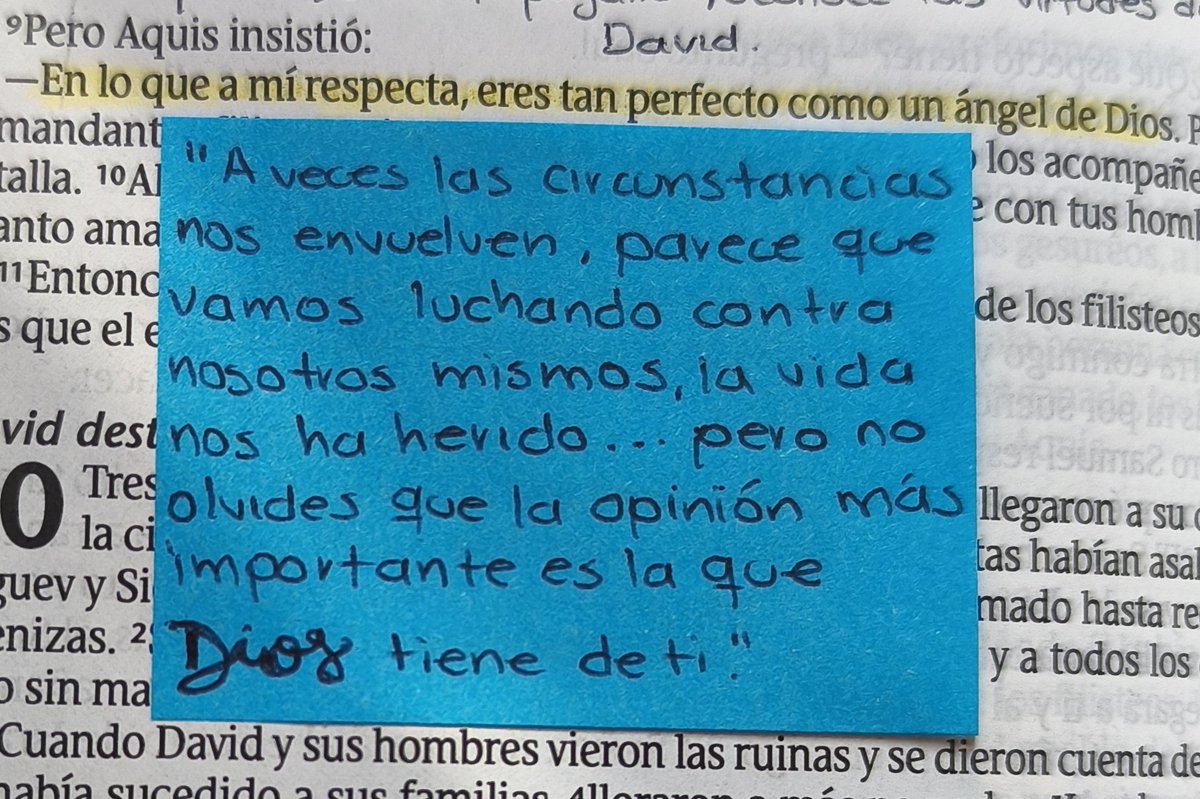 virtudes d
⁹Pero Aquis insistió: David.
—En lo que a mí respecta, eres tan perfecto como un ángel de Dios. P
mandant
los acompañe
talla. ¹⁰Al
e con tus homb
anto ama
¹¹Entonc
de los filisteos
s que el e
"A veces las circunstancias
nos envuelven, parece que
vamos luchando contra
nosotros mismos, la vida
nos ha herido... pero no
olvides que la opinión más
importante es la que
Dios tiene de ti."
vid dest
0 Tres
llegaron a su
la ci
tas habían asal
guev y Si
mado hasta re
enizas. ²
y a todos los
o sin ma
Cuando David y sus hombres vieron las ruinas y se dieron cuenta de
había sucedido a sus familias, ⁴lloraron a más no